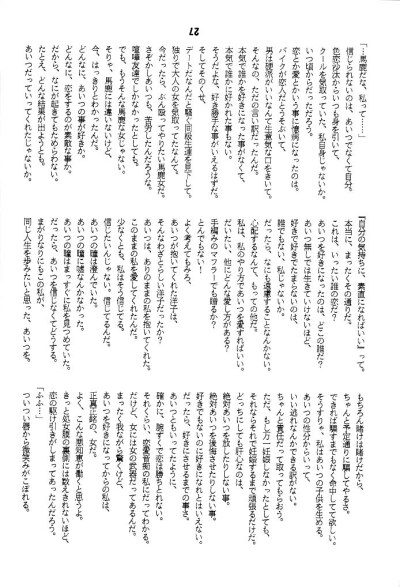 27
「…馬鹿だな、私って……」
信じられないのは、あいつでなくて自分。
色恋沙汰からいつも身を引いて
クールを気取っていた、私自身じゃないか。
いつ頃からだったんだろう。
恋とか愛とかいう事に憶病になったのは。
バイクが恋人だとうそぶいて、
男は腰抜がいいなんて生意気な口をきいて。
そんなの、ただの言い訳だったんだ。
本気で誰かを好きになった事がなくて。
本気で誰かに好かれた事もない。
そうだよな、好き勝手な事がいえるはずだ。
そしてそのくせ、
デートだなんだと騒ぐ同級生達を見下して。
独りで大人の女を気取ってたなんて。
今だったら、ぶん殴ってやりたい馬鹿女だ。
さぞかしあいつも、苦労したんだろうな。
喧嘩友達でしかなかったとしても。
でも、もうそんな馬鹿な女じゃない。
そりゃ、馬鹿には違いないけど、
今、はっきりとわかったんだ。
どんなに、あいつの事が好きか。
どんなに、恋をするのが素敵な事か。
だから、なにが起きてもためらわない。
たとえ、どんな結果が出ようとも。
あいつだっていってくれたんだ。
『自分の気持ちに、素直になればいい』って。
本当に、まったくその通りだ。
これは、いったい誰の恋だ?
あいつを好きになったのは、どこの誰だ?
あいつ無しでは生きていけないほど、
好きで好きでたまらないのは、
誰でもない、私じゃないか。
だったら、なにも遠慮することなんかない。
心配するなんて、もっての他だ。
私は、私のやり方であいつを愛すればいい。
だいたい、他にどんな愛し方がある?
手編みのマフラーでも贈るか?
とんでもない!
よく考えてもみろ、
あいつが抱いてくれた洋子は、
そんなわざとらしい洋子だったか?
あいつは、ありのままの私を抱いてくれた。
このままの私を愛してくれたんだ。
少なくとも、私はそう信じてる。
信じたいんじゃない。信じてるんだ。
あいつの瞳は澄んでいた。
あいつの瞳に嘘なんかなかった。
あいつの瞳はまっすぐに私を見つめていた。
だったら、あいつを信じなくてどうする。
まがりなりにもこの私が、
同じ人生を歩みたいと思った、あいつを。
もちろん賭けだけれど、
ちゃんと予定通りに騙してやるさ。
できれば騙すまでもなく命中してて欲しい。
そうすりゃ、私はあいつの子供を生める。
あいつの他分からいって、
いい逃れなんかできる筈がない。
ちゃんと責任だって取ってもらおう。
ただ、もし万一妊娠しなかったとしても、
それならそれで妊娠するまで頑張るだけだ。
どっちにしても肝心なのは、
絶対あいつを放したりしない事。
絶対あいつを後悔させたりしない事。
好きでもないのに好きになれとはいえない。
だったら、好きにさせるまでの事さ。
あいつともいってたように、
確かに、腕ずくで恋は勝ちとれない。
それくらい、恋愛音痴の私にだってわかる。
だけど、女には女の武器だってあるんだ。
まったく我ながら驚くけど、
あいつを好きになってからの私は、
正真正銘の、女だ。
よく、こんな悪知恵が働くと思うよ。
きっと処女膜の裏側には数えきれないほど、
恋の駆け引きがしまってあったんだろう。
「ふふ…」
ついつい唇から微笑みがこぼれる。